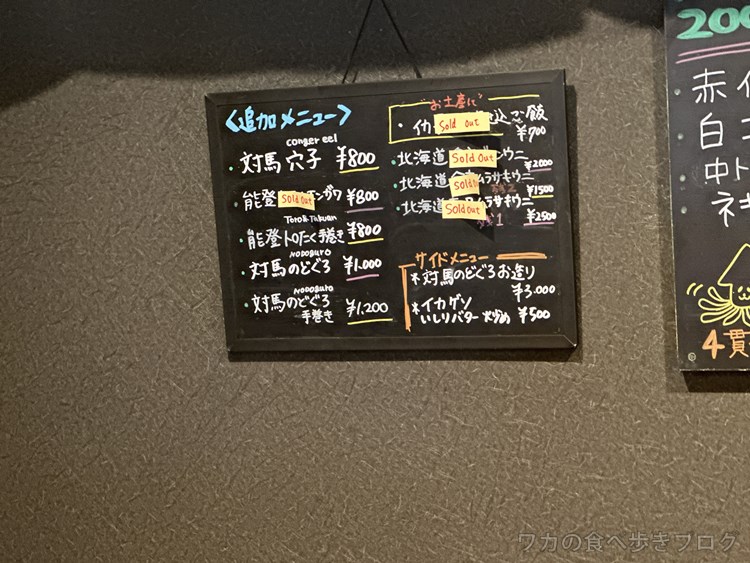 〈追加メニュー〉
conger eel
・対馬 穴子 ¥800
・能登 Sold out ンガワ ¥800
Toro & Takuan
・能登 トロたく手巻き ¥800
NODOGURO
・対馬のどぐろ ¥1.000
NODOGURO
・対馬のどぐろ
手巻き ¥1.200
お土産に
・イカ Sold out 込ご飯
¥700
・北海道 Sold Out ンウニ
¥2000
・北海道 Sold ムラサキウニ
¥1500
・北海道 Sold out ムラサキウニ
¥2500
サイドメニュー
*対馬のどぐろお造り
¥3.000
*イカゲソ
いしりバター炒め ¥500
200
赤
白
中ト
4貫
ワカの食べ歩きブログ